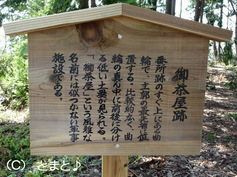 御茶屋跡
番所跡のすぐ上にある曲
輪で、主郭の背後に位
置する。比較的小さな曲
輪の真ん中に前後二分
する低い土塁が見られる。
「御茶屋」という風雅な
名前には似つかない軍事
施設である。
(C)とまと♪